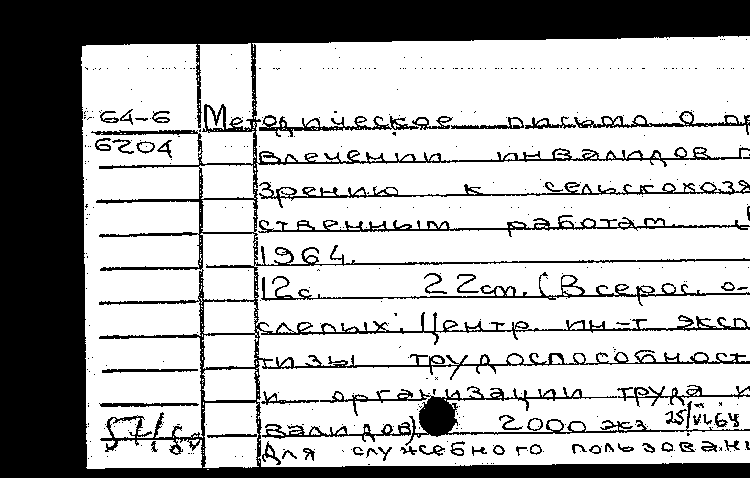 64-6 Методическое письмо о пр
6204 влечении инвалидов п
зрению к сельскохозя
ственным работам.
1964.
12с. 22см. (Всерос. о-
слепых. Центр. ин-т эксп
тизы трудоспособност
и организации труда и
валидов). 2000 экз 25/VI.64
Для служебного пользовани